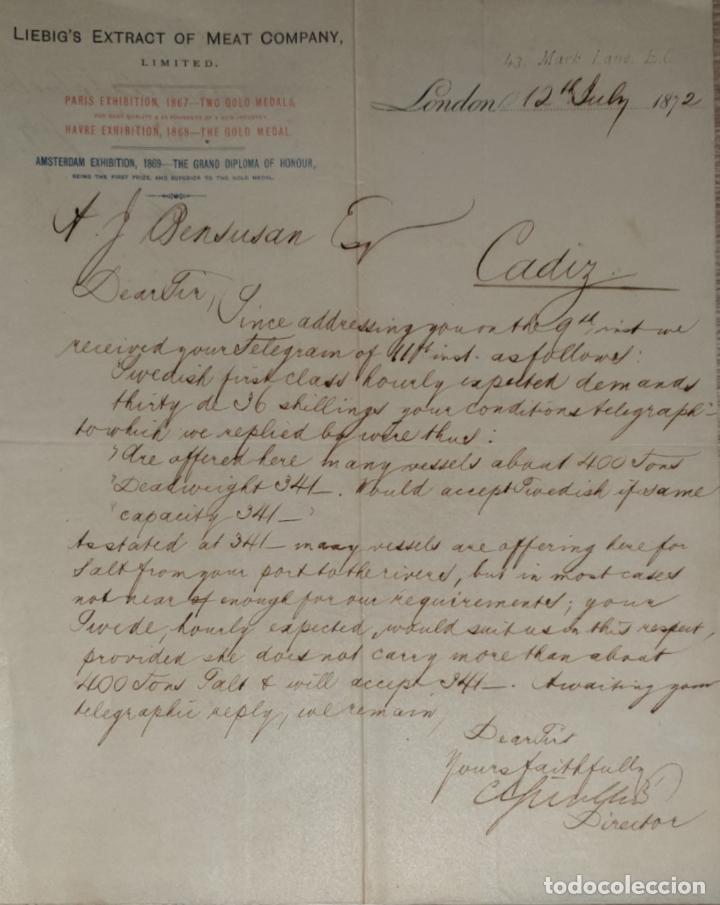 LIEBIG'S EXTRACT OF MEAT COMPANY,
LIMITED.
PARIS EXHIBITION, 1867—TWO GOLD MEDALS,
HAVRE EXHIBITION, 1868—THE GOLD MEDAL.
AMSTERDAM EXHIBITION, 1869—THE GRAND DIPLOMA OF HONOUR,
BEING THE FIRST PRIZE, AND SUPERIOR TO THE GOLD MEDAL.
43, Mark Lane, E.C.
London, 12th July 1872
A J Bensusan Esq
Cadiz.
Dear Sir, Since addressing you on the 9th inst we
received your Telegram of 11th inst. as follows:
Swedish first class hourly expected demands
thirty de 36 shillings your conditions telegraph"
to which we replied by wire thus:
"Are offered here many vessels about 400 Tons
"Deadweight 34/-. Would accept Swedish if same
"capacity 34/-"
As stated at 34/- many vessels are offering here for
Salt from your port to the rivers, but in most cases
not near enough for our requirements; your
Swede, hourly expected, would suit us in this respect,
provided she does not carry more than about
400 Tons Salt & will accept 34/-. Awaiting your
telegraphic reply, we remain,
Dear Sir
Yours faithfully
Director
todocoleccion